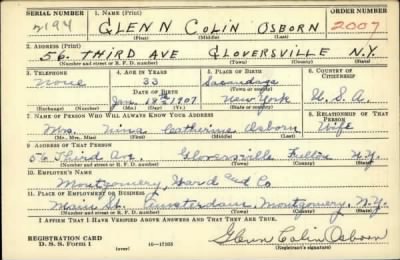 SERIAL NUMBER 1. NAME (Print) ORDER NUMBER
2194 GLENN COLIN OSBORN 2007
(First) (Middle) (Last)
2. ADDRESS (Print)
56 THIRD AVE GLOVERSVILLE N.Y.
(Number and street or R. F. D. number) (Town) (County) (State)
3. TELEPHONE 4. AGE IN YEARS 5. PLACE OF BIRTH 6. COUNTRY OF CITIZENSHIP
None 33
DATE OF BIRTH (Town or county)
Jan. 1907 New York U.S.A.
(Exchange) (Number) (Mo.) (Day) (Yr.) (State or country)
7. NAME OF PERSON WHO WILL ALWAYS KNOW YOUR ADDRESS 8. RELATIONSHIP OF THAT PERSON
Mrs. Nina Catherine Osborn Wife
(Mr., Mrs., Miss) (First) (Middle) (Last)
9. ADDRESS OF THAT PERSON
56 Third Ave. Gloversville Fulton N.Y.
(Number and street or R. F. D. number) (Town) (County) (State)
10. EMPLOYER'S NAME
Montgomery, Ward and Co
11. PLACE OF EMPLOYMENT OR BUSINESS
Main St. Amsterdam, Montgomery, N.Y.
(Number and street or R. F. D. number) (Town) (County) (State)
I AFFIRM THAT I HAVE VERIFIED ABOVE ANSWERS AND THAT THEY ARE TRUE.
REGISTRATION CARD
D. S. S. Form 1 (over) 16—17105 Glenn Colin Osborn